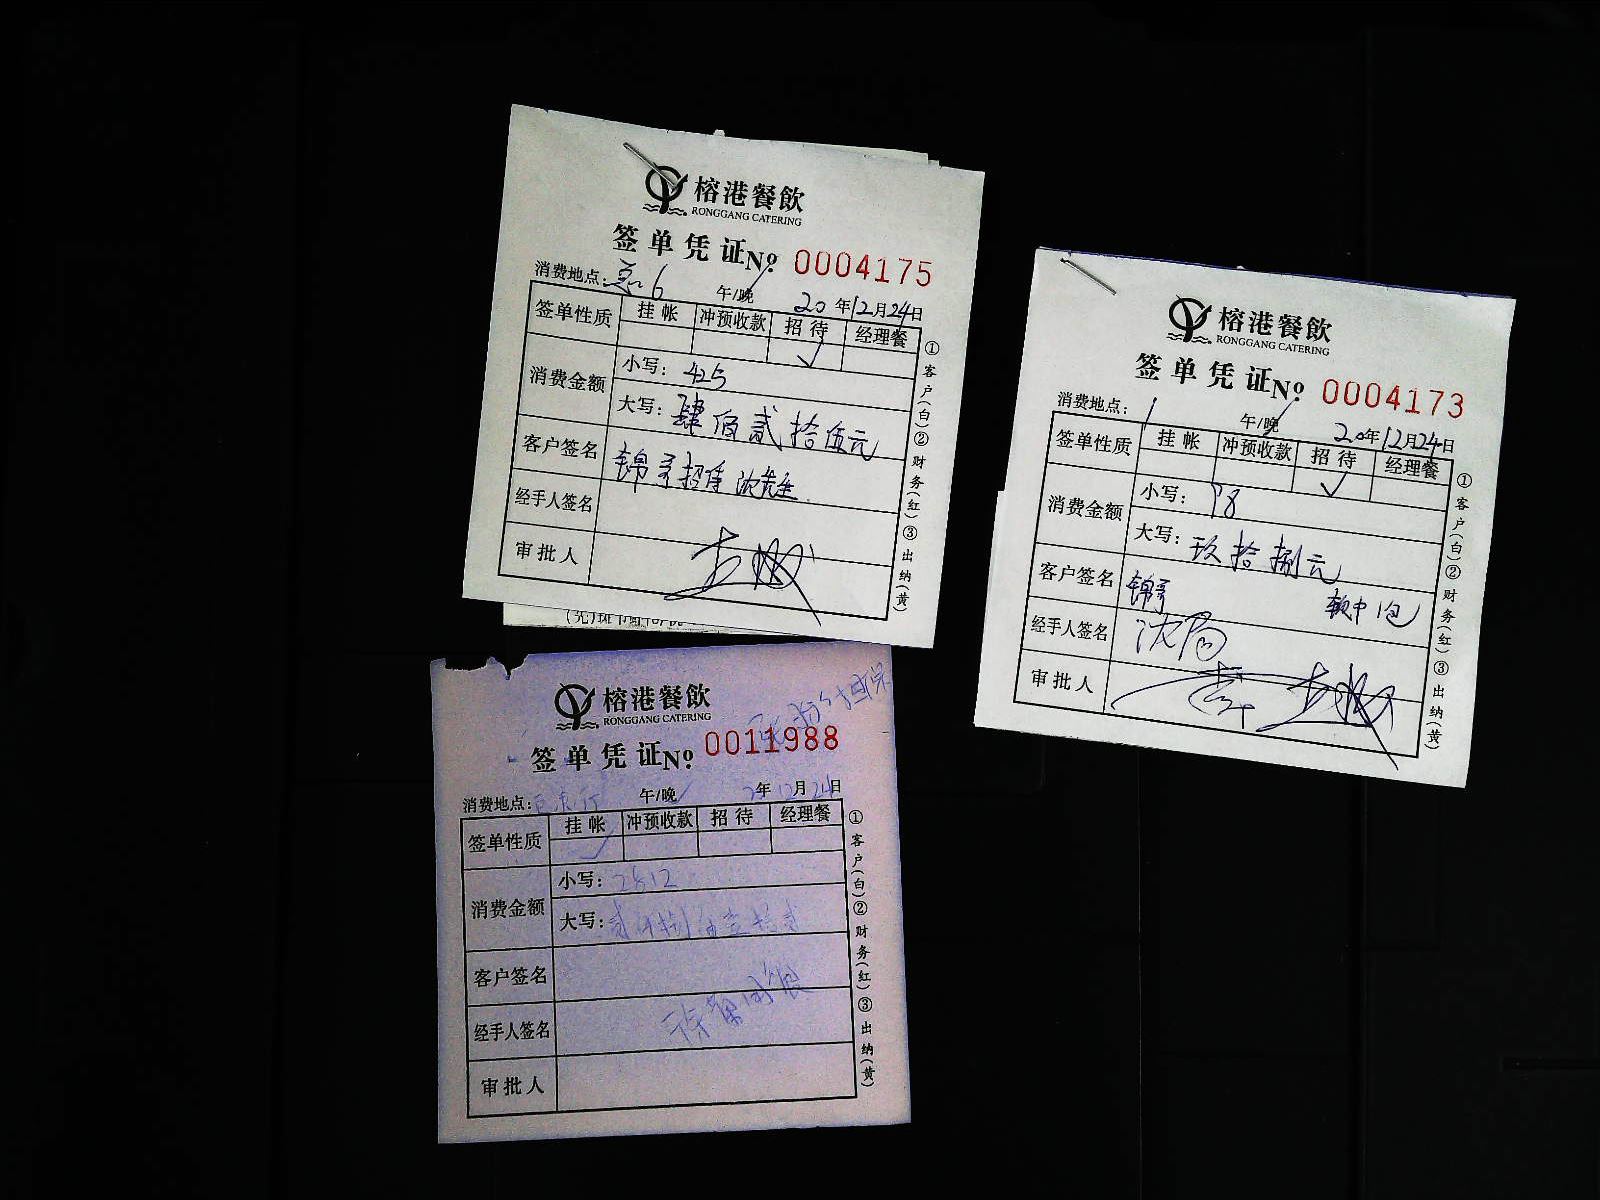 榕港餐飲
RONGGANG CATERING
签单凭证 № 0004175
消费地点: 6 午/晚 20年12月24日
签单性质 挂帐 冲预收款 招待 经理餐
✓
消费金额 小写: 425
大写: 肆佰贰拾伍元
客户签名 锦哥招待沈雄
经手人签名
审批人
①客户(白)②财务(红)③出纳(黄)
榕港餐飲
RONGGANG CATERING
签单凭证 № 0004173
消费地点: 1 午/晚 20年12月24日
签单性质 挂帐 冲预收款 招待 经理餐
✓
消费金额 小写: 98
大写: 玖拾捌元
客户签名 锦哥 软中1包
经手人签名 沈
审批人
①客户(白)②财务(红)③出纳(黄)
榕港餐飲
RONGGANG CATERING
签单凭证 № 0011988
消费地点: 午/晚 年12月24日
签单性质 挂帐 冲预收款 招待 经理餐
✓
消费金额 小写: 2812
大写: 贰仟捌佰壹拾贰
客户签名
经手人签名
审批人
①客户(白)②财务(红)③出纳(黄)